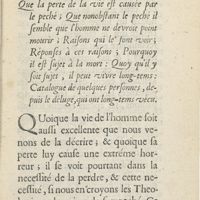 Que la perte de la vie est causée par
le peché; Que nonobstant le peché il
semble que l'homme ne devroit point
mourir; Raisons qui le font voir;
Réponses à ces raisons; Pourquoy
il est sujet à la mort: Quoy qu'il y
soit sujet, il peut vivre long-tems:
Catalogue de quelques personnes, de-
puis le déluge, qui ont long-tems vécu.
QUoique la vie de l'homme soit
aussi excellente que nous ve-
nons de la décrire; & quoique sa
perte luy cause une extréme hor-
reur; il se voit pourtant dans la
necessité de la perdre, & cette ne-
cessité, si nous en croyons les Theo-